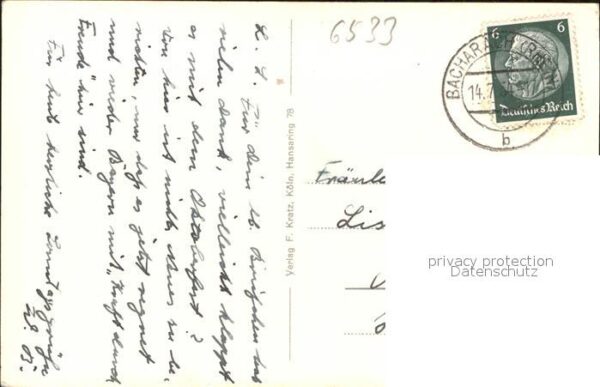 6533
6 6
Deutsches Reich
BACHARACH (RHEIN)
14.7.
b
L. L. Für Dein lb. Briefchen hab
vielen Dank, vielleicht klappt
es mit dem Oktoberfest?
Von hier ist nichts Neues zu be-
richten, nur daß es jetzt regnet
und wieder Bayern mit "Kraft durch
Freude" hier sind.
Für heut herzliche Sonntagsgrüße
Verlag F. Kratz, Köln, Hansaring 78
Fräule
Lis
privacy protection
Datenschutz